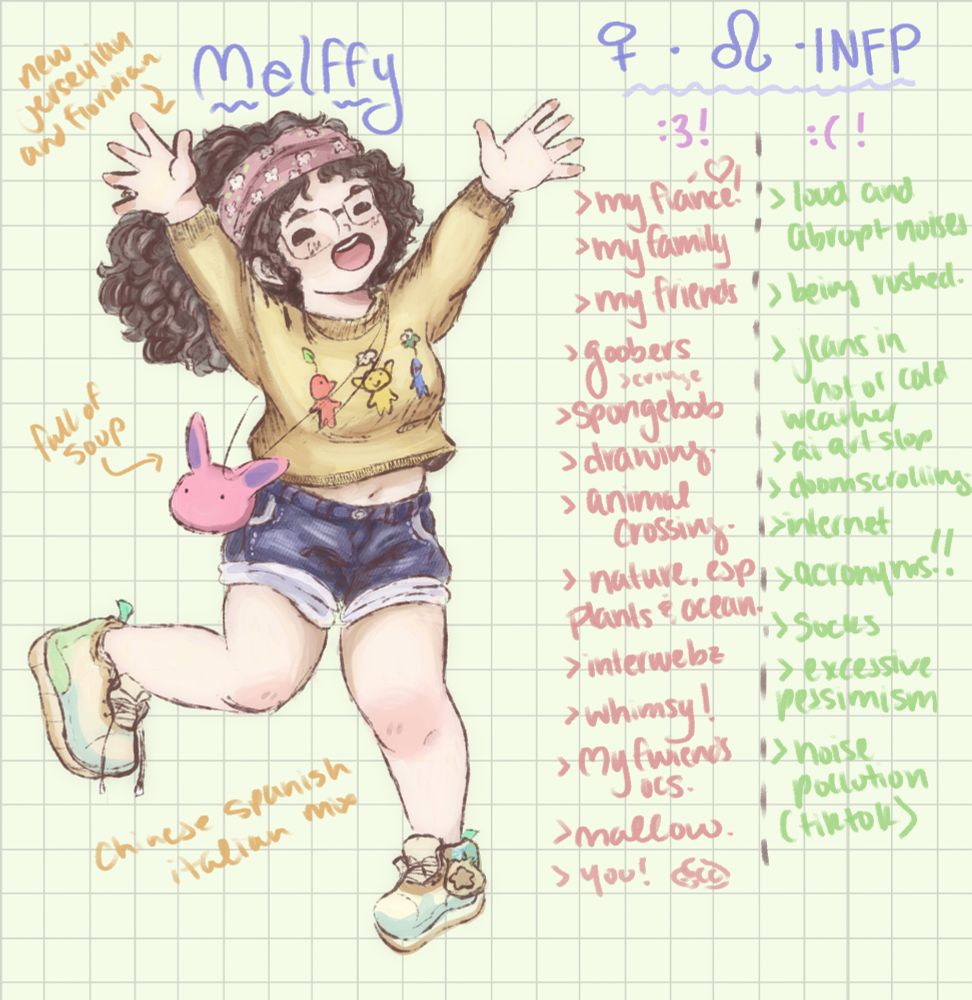 new
jerseyian
and floridian
Melffy
♀ · ♌ · INFP
:3!
> my fiance!
> my family
> my friends
> goobers
> cringe
> spongebob
> drawing.
> animal
crossing.
> nature, esp
plants & ocean.
> interwebz
> whimsy!
> my fwiends
ocs.
> mallow.
> you!
:( !
> loud and
abrupt noises
> being rushed.
> jeans in
hot or cold
weather
> ai art slop
> doomscrolling
> internet
> acronyms!!
> socks
> excessive
pessimism
> noise
pollution
(tiktok)
full of
soup
Chinese spanish
italian mix